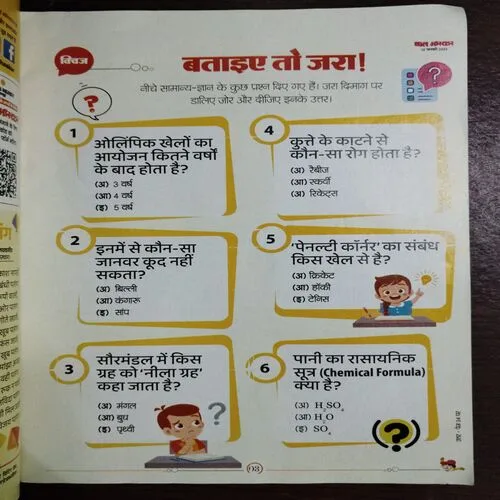 क्विज
बताइए तो जरा!
बाल भास्कर
नीचे सामान्य-ज्ञान के कुछ प्रश्न दिए गए हैं। जरा दिमाग पर
डालिए जोर और दीजिए इनके उत्तर।
1
ओलिंपिक खेलों का
आयोजन कितने वर्षों
के बाद होता है?
(अ) 3 वर्ष
(आ) 4 वर्ष
(इ) 5 वर्ष
2
इनमें से कौन-सा
जानवर कूद नहीं
सकता?
(अ) बिल्ली
(आ) कंगारू
(इ) सांप
3
सौरमंडल में किस
ग्रह को 'नीला ग्रह'
कहा जाता है?
(अ) मंगल
(आ) बुध
(इ) पृथ्वी
4
कुत्ते के काटने से
कौन-सा रोग होता है?
(अ) रैबीज
(आ) स्कर्वी
(इ) रिकेट्स
5
'पेनल्टी कॉर्नर' का संबंध
किस खेल से है?
(अ) क्रिकेट
(आ) हॉकी
(इ) टेनिस
6
पानी का रासायनिक
सूत्र (Chemical Formula)
क्या है?
(अ) H₂SO₄
(आ) H₂O
(इ) SO₄
03